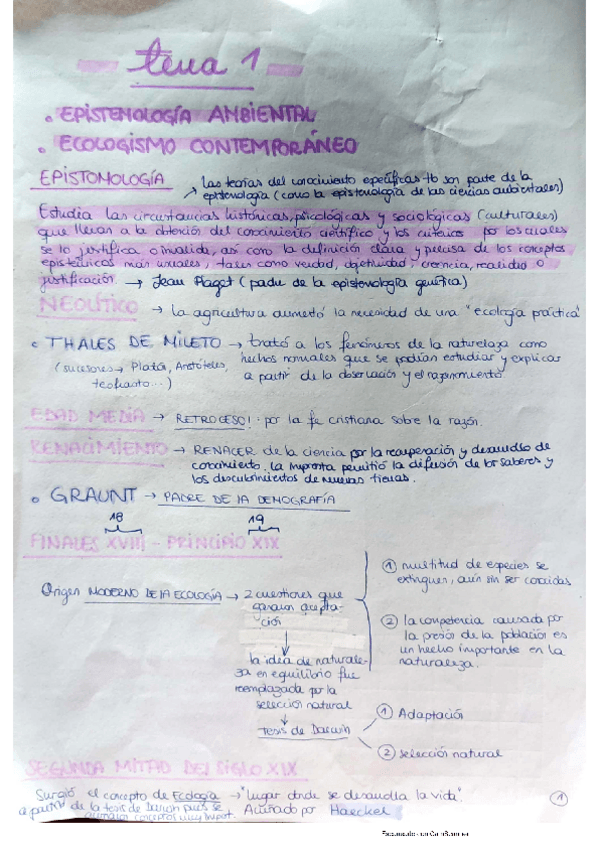 tema 1
• EPISTEMOLOGÍA AMBIENTAL
• ECOLOGISMO CONTEMPORÁNEO
EPISTOMOLOGÍA
↳ las teorías del conocimiento específicas tb son parte de la
epistemología (como la epistemología de las ciencias ambientales)
Estudia las circunstancias históricas, psicológicas y sociológicas (culturales)
que llevan a la obtención del conocimiento científico y los criterios por los cuales
se lo justifica o invalida, así como la definición clara y precisa de los conceptos
epistémicos más usuales, tales como verdad, objetividad, creencia, realidad o
justificación. → Jean Piaget (padre de la epistemología genética)
NEOLÍTICO → la agricultura aumentó la necesidad de una "ecología práctica"
• THALES DE MILETO → trató a los fenómenos de la naturaleza como
hechos normales que se podían estudiar y explicar
a partir de la observación y el razonamiento
(sucesores → Platón, Aristóteles,
teofrasto...)
EDAD MEDIA → RETROCESO! por la fe cristiana sobre la razón.
RENACIMIENTO → RENACER de la ciencia por la recuperación y desarrollo de
conocimiento, la imprenta permitió la difusión de los saberes y
los descubrimientos de nuevas tierras.
• GRAUNT → PADRE DE LA DEMOGRAFÍA
18 19
FINALES XVIII - PRINCIPIO XIX
Origen MODERNO DE LA ECOLOGÍA → 2 cuestiones que
ganaron acepta-
ción
① multitud de especies se
extinguen, aún sin ser conocidas
② la competencia causada por
la presión de la población es
un hecho importante en la
naturaleza.
la idea de naturale-
za en equilibrio fue
reemplazada por la
selección natural
Tesis de Darwin
① Adaptación
② selección natural
SEGUNDA MITAD DEL SIGLO XIX
Surgió el concepto de Ecología → "lugar donde se desarrolla la vida".
a partir de la tesis de Darwin pues se
Acuñado por Haeckel
conceptos muy import.
①